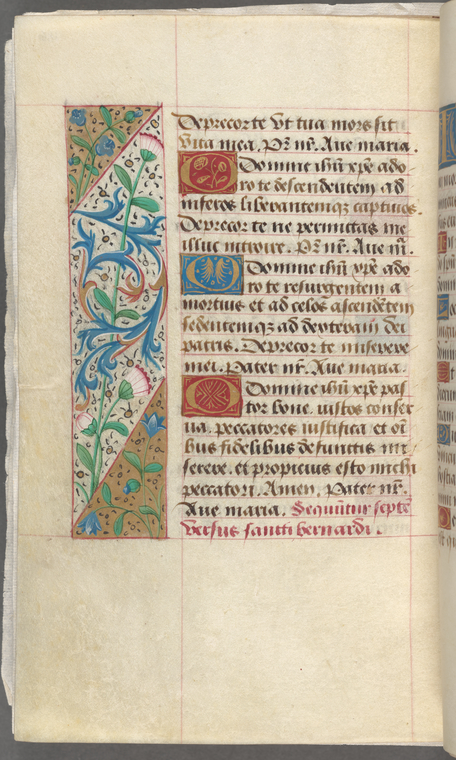 Deprecor te vt tua mors sit
vita mea. Pr̃ nr̃. Aue maria.
Domine ihũ xp̃e ado
ro te descendentem ad
inferos liberantemqꝫ captiuos.
Deprecor te ne permittas me
illuc introire. Pr̃ nr̃. Aue m̃.
Domine ihũ xp̃e ado
ro te resurgentem a
mortuis et ad celos ascendẽtem
sedentemqꝫ ad dexteram dei
patris. Deprecor te miserere
mei. Pater nr̃. Aue maria.
Domine ihũ xp̃e pas
tor bone. iustos conser
ua. peccatores iustifica et oĩ
bus fidelibus defunctis mi
serere. et propicius esto michi
peccatori. Amen. Pater nr̃.
Aue maria. Sequũtur septẽ
versus sancti bernardi.